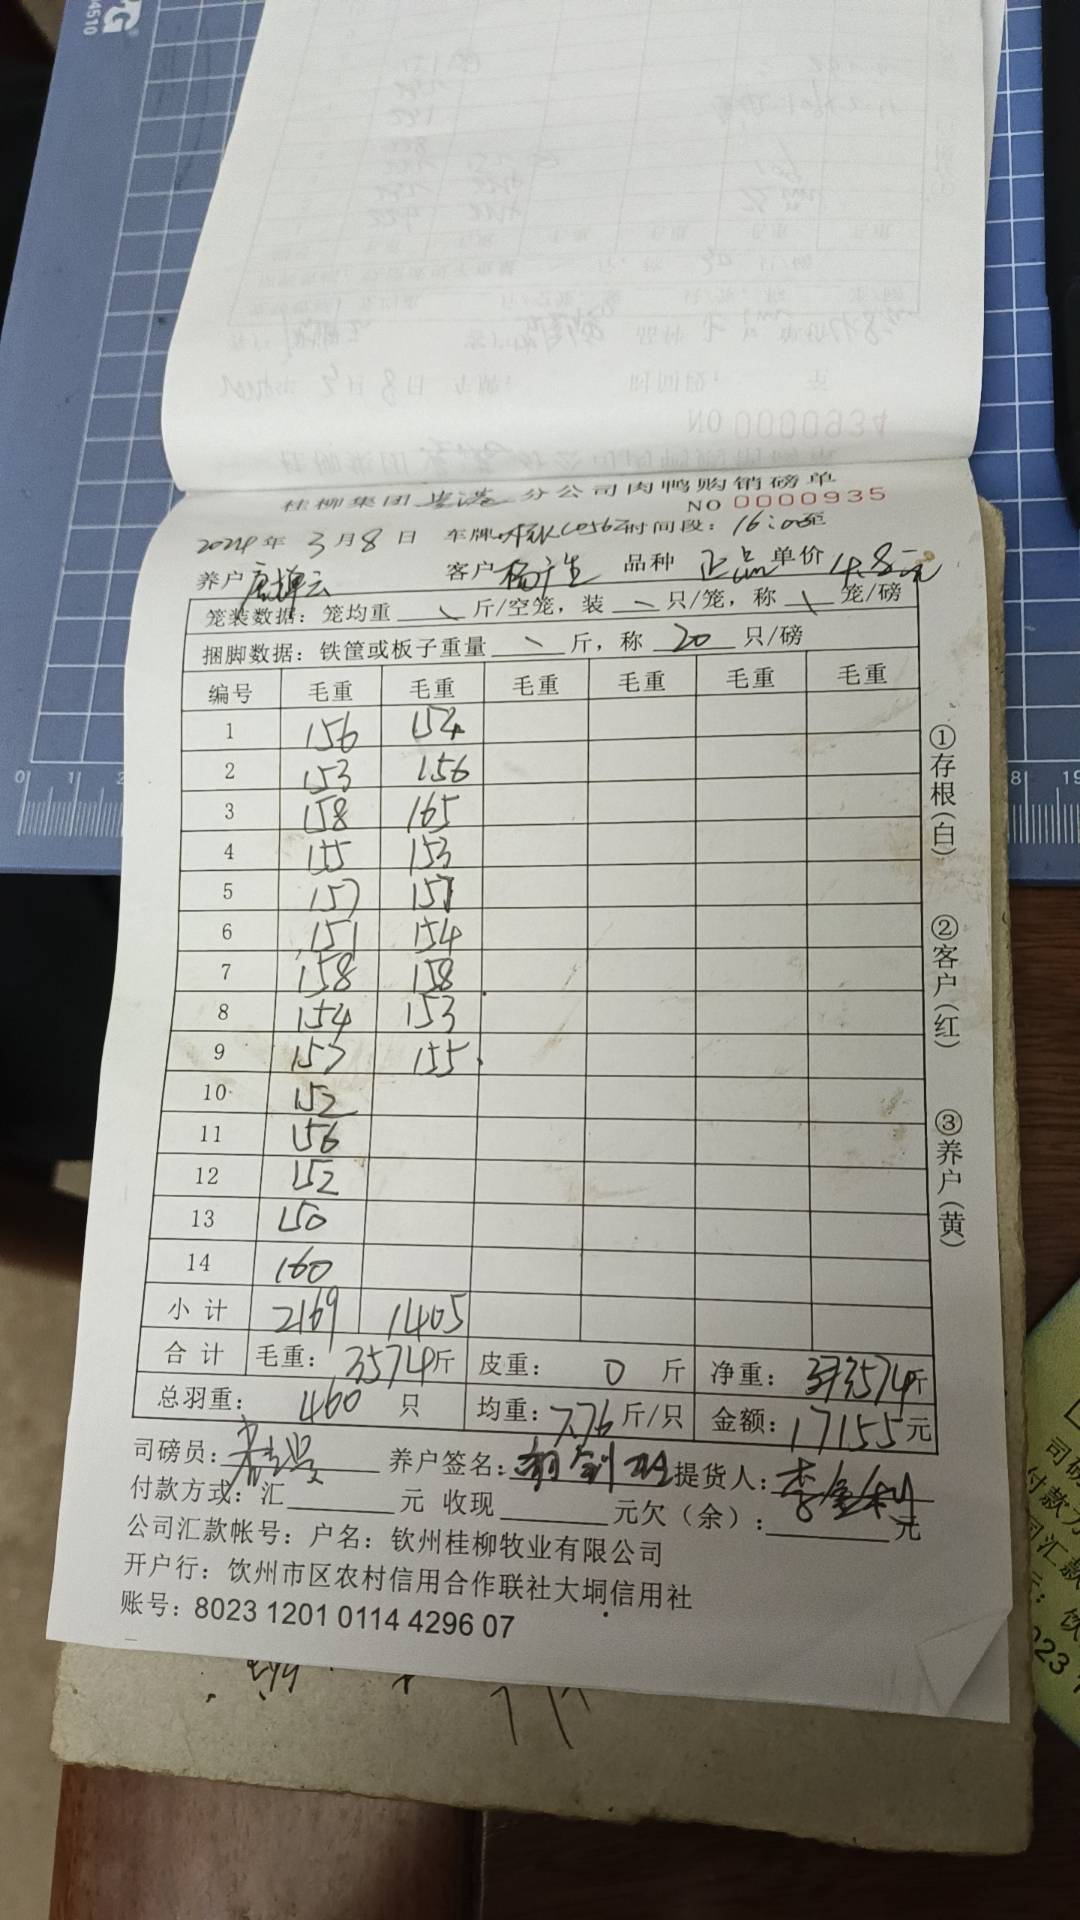 桂柳集团 分公司肉鸭购销磅单
NO 0000935
2024年 3月8日 车牌 C0562 时间段：16:00至
养户 客户 杨广生 品种 正品 单价 4.8元
笼装数据：笼均重 \ 斤/空笼，装 \ 只/笼，称 \ 笼/磅
捆脚数据：铁筐或板子重量 \ 斤，称 20 只/磅
编号 毛重 毛重 毛重 毛重 毛重 毛重
1 156 154
2 153 156
3 158 165
4 155 153
5 157 157
6 151 154
7 158 158
8 154 153
9 157 155
10 152
11 156
12 152
13 150
14 160
小计 2169 1405
合计 毛重：3574斤 皮重：0 斤 净重：3574斤
总羽重：460 只 均重：7.76斤/只 金额：17155元
司磅员： 养户签名： 提货人：李金利
付款方式：汇 元 收现 元欠（余）： 元
公司汇款帐号：户名：钦州桂柳牧业有限公司
开户行：饮州市区农村信用合作联社大垌信用社
账号：8023 1201 0114 4296 07
①存根（白）
②客户（红）
③养户（黄）
NO 0000934
4510